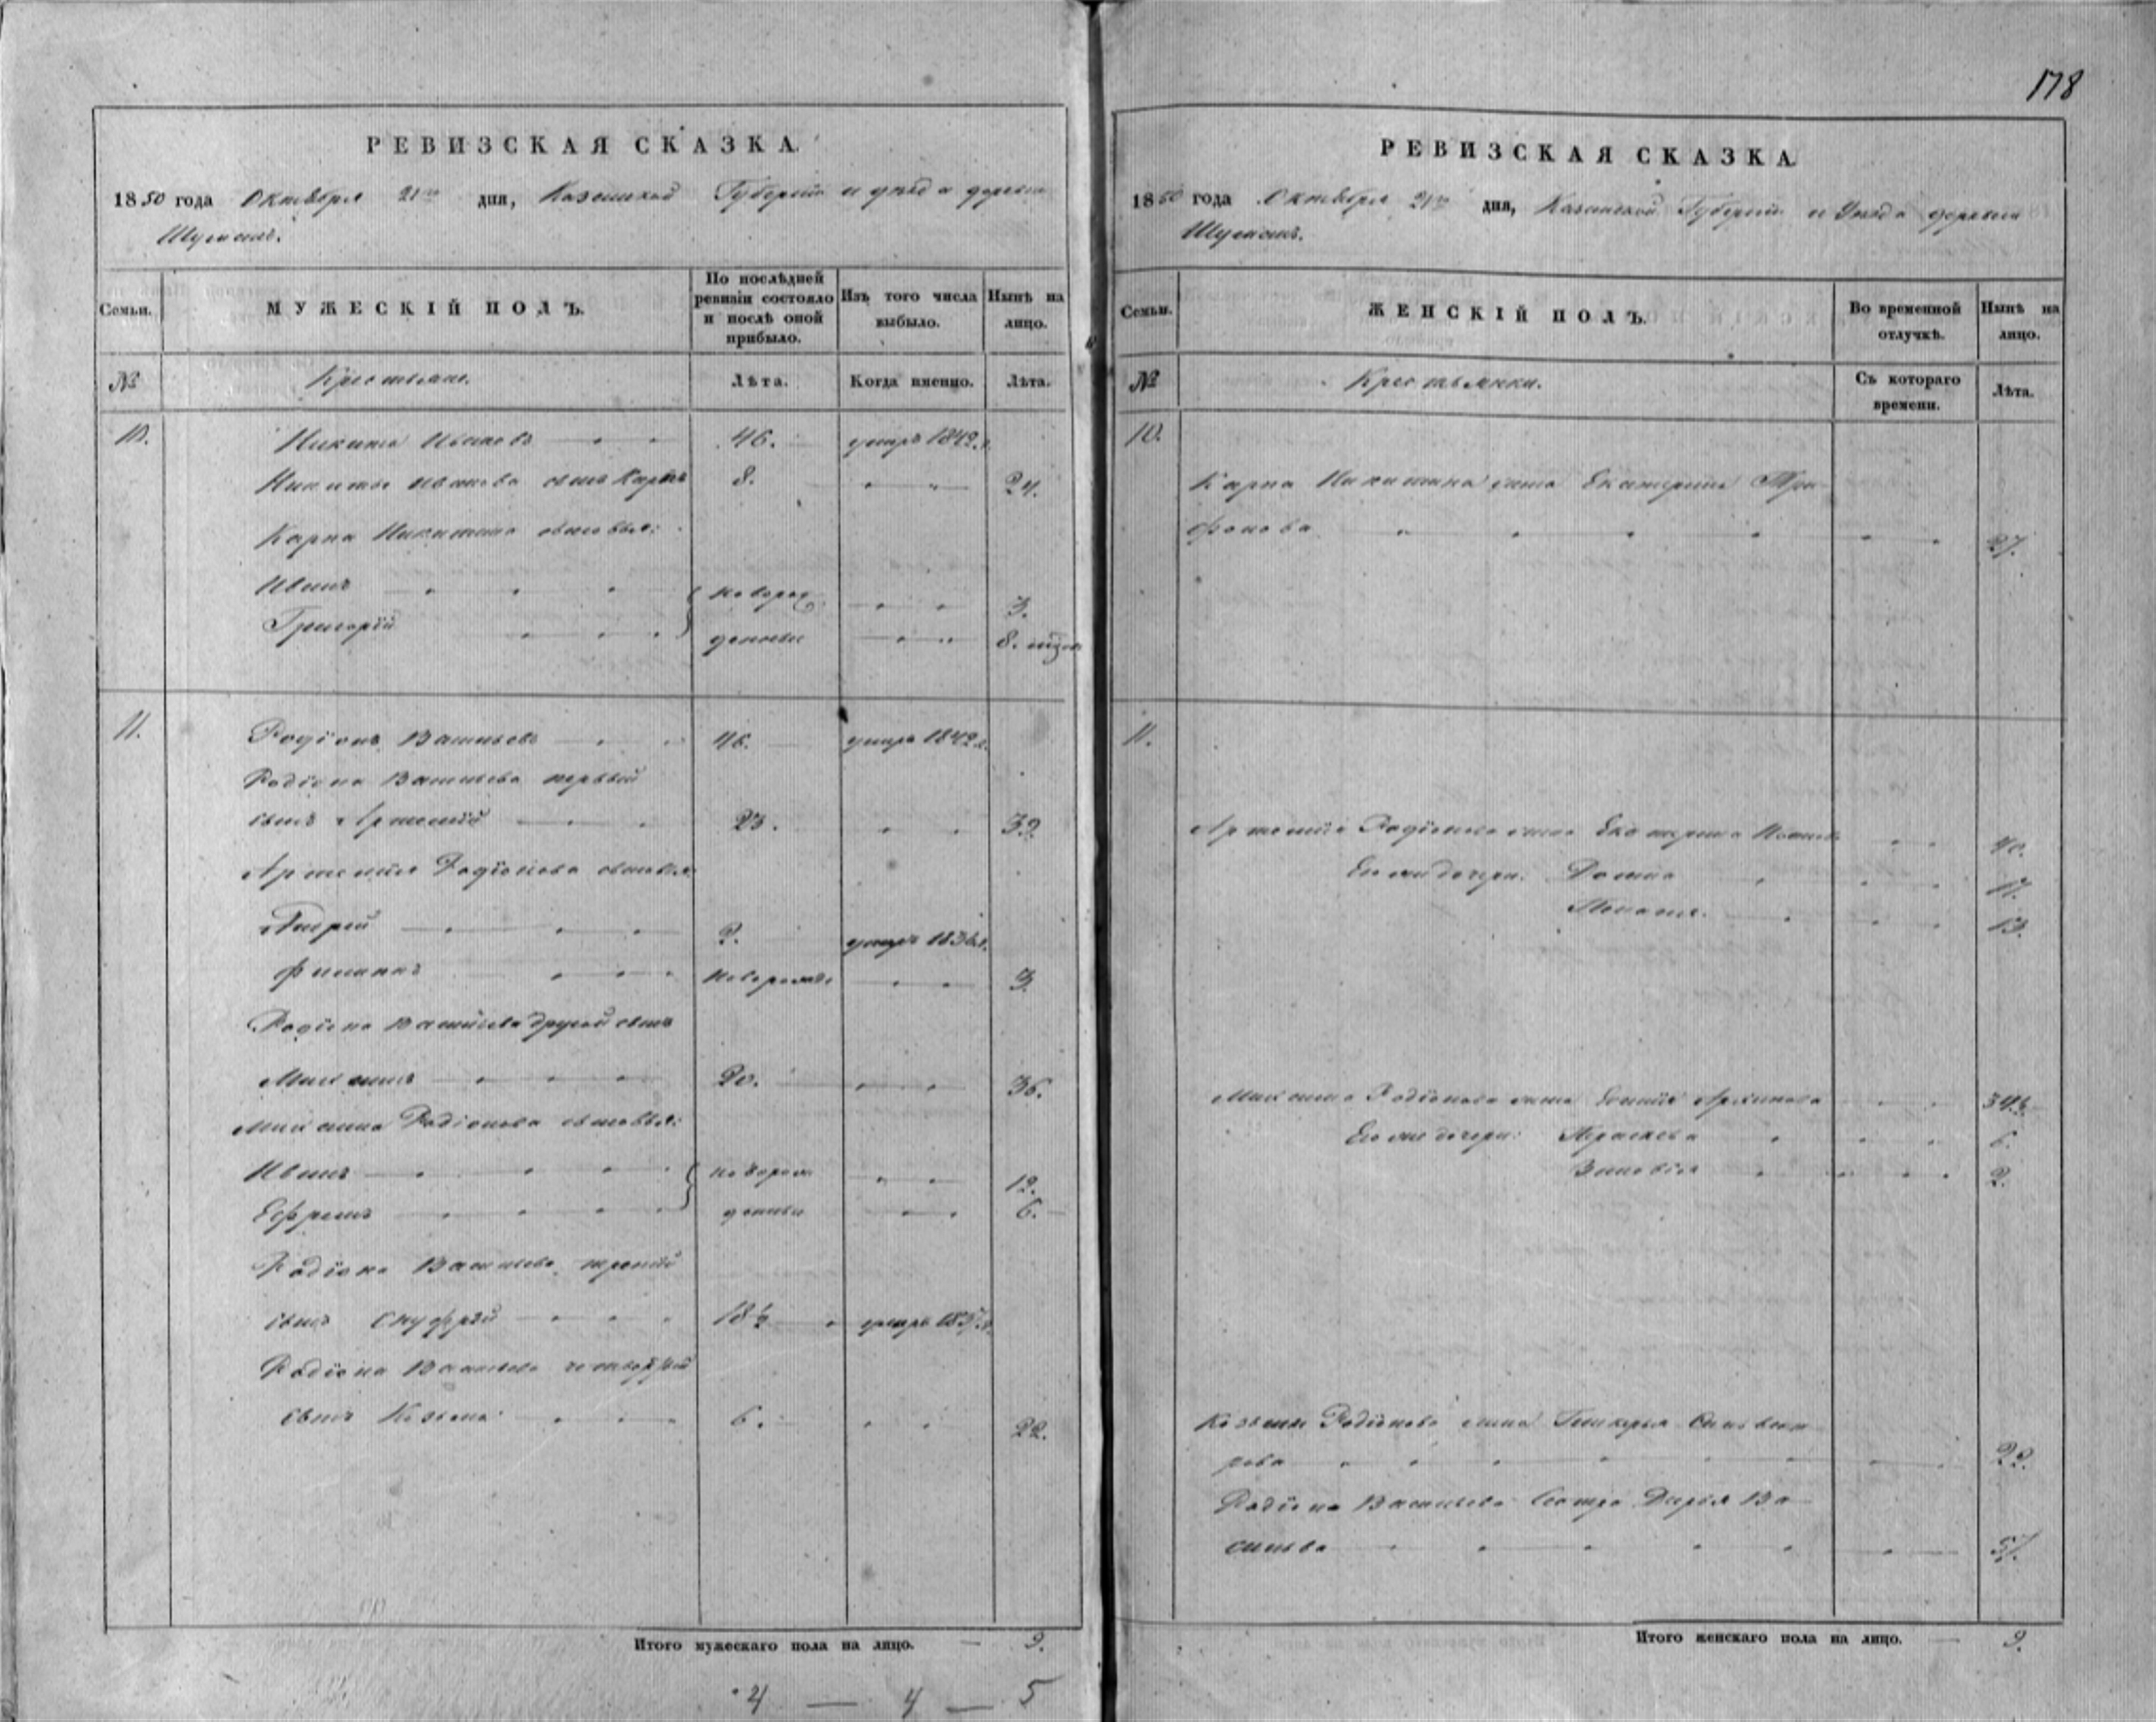 178
РЕВИЗСКАЯ СКАЗКА.
1850 года Октября 21го дня, Казанской Губернiи и уѣзда деревни
Шумковъ.
Семьи. МУЖЕСКIЙ ПОЛЪ. По послѣдней ревизiи состояло и послѣ оной прибыло. Изъ того числа выбыло. Нынѣ на лицо.
№ Крестьяне. Лѣта. Когда именно. Лѣта.
10. Никита Ивановъ 46. умеръ 1842.г.
Никиты Иванова сынъ Карпъ 8. 24.
Карпа Никитина сыновья:
Иванъ новорож 3.
Григорiй денные 8. мѣсяц
11. Родiонъ Васильевъ 46. умеръ 1842.г.
Родiона Васильева первый
сынъ Артемiй 23. 39.
Артемiя Родiонова сыновья:
Андрей 2. умеръ 183
Филипъ новорожде 3.
Родiона Васильева другой сынъ
Максимъ 20. 36.
Максима Родiонова сыновья:
Иванъ новорож 12.
Ефремъ денные 6.
Родiона Васильева третiй
сынъ Онуфрiй 18½ умеръ 183
Родiона Васильева четвертый
сынъ Козьма 6. 22.
Итого мужескаго пола на лицо. 9.
4 — 4 — 5
РЕВИЗСКАЯ СКАЗКА
1850 года Октября 21го дня, Казанской Губернiи и Уѣзда деревни
Шумковъ.
Семьи. ЖЕНСКIЙ ПОЛЪ. Во временной отлучкѣ. Нынѣ на лицо.
№ Крестьянки. Съ котораго времени. Лѣта.
10.
Карпа Никитина жена Екатерина Три-
фонова 27.
11.
Артемiя Родiонова жена Екатерина 40.
Его же дочери: 17.
13.
Максима Родiонова жена Архипова 34½
Его же дочери: Парасковья 6.
Зиновiя 2.
Козьмы Родiонова жена Гликерья Сильвест-
рова 22.
Родiона Васильева Сестра Дарья Ва-
сильева 51.
Итого женскаго пола на лицо. 9.